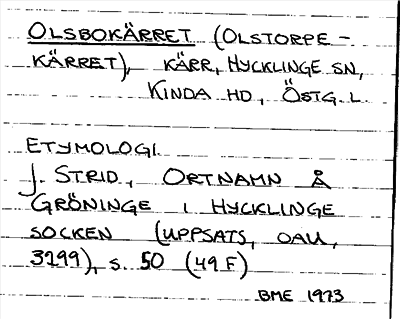 OLSBOKÄRRET (OLSTORPE-
KÄRRET), KÄRR, HYCKLINGE SN,
KINDA HD, ÖSTG. L.
ETYMOLOGI
J. STRID, ORTNAMN Å
GRÖNINGE I HYCKLINGE
SOCKEN (UPPSATS, OAU,
3299), S. 50 (49 F)
BME 1973